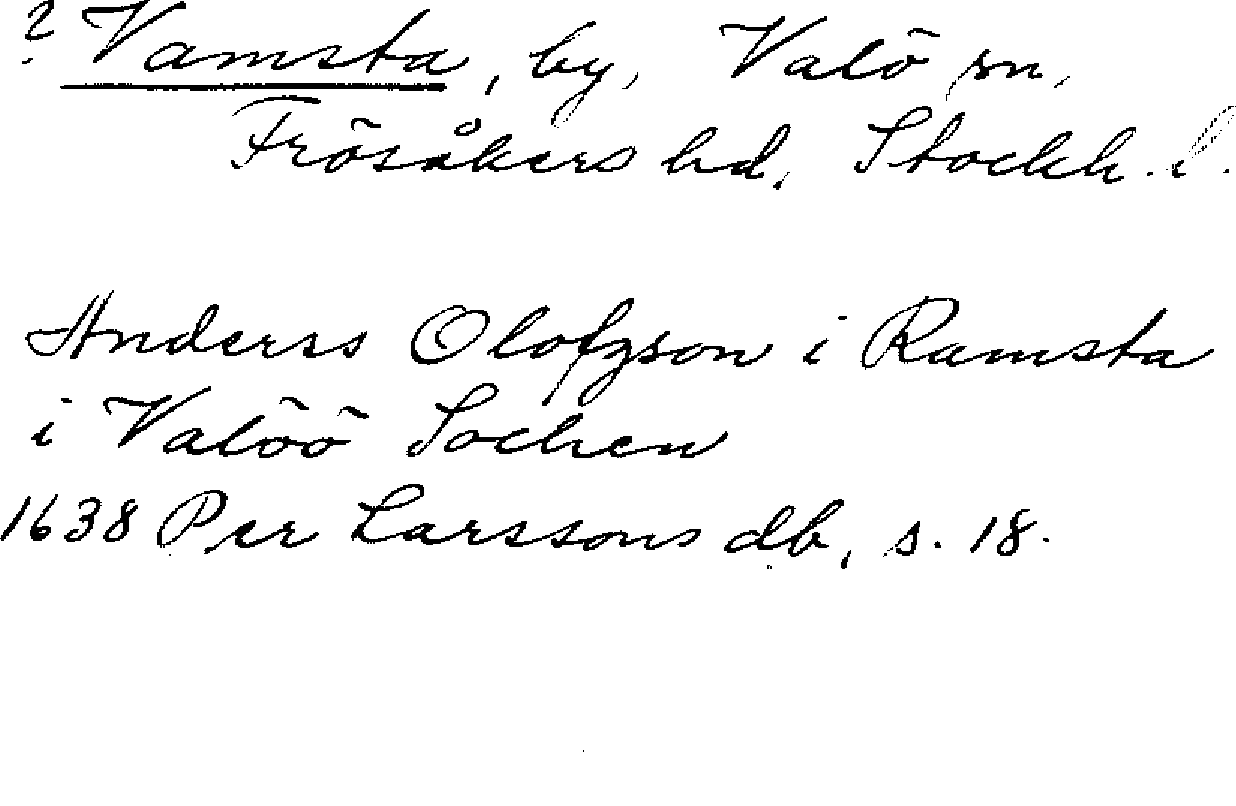 ? Vamsta, by, Valö sn,
Frösåkers hd, Stockh. l.
Anderss Olofzson i Ramsta
i Valöö Sochen
1638 Per Larssons db, s. 18.